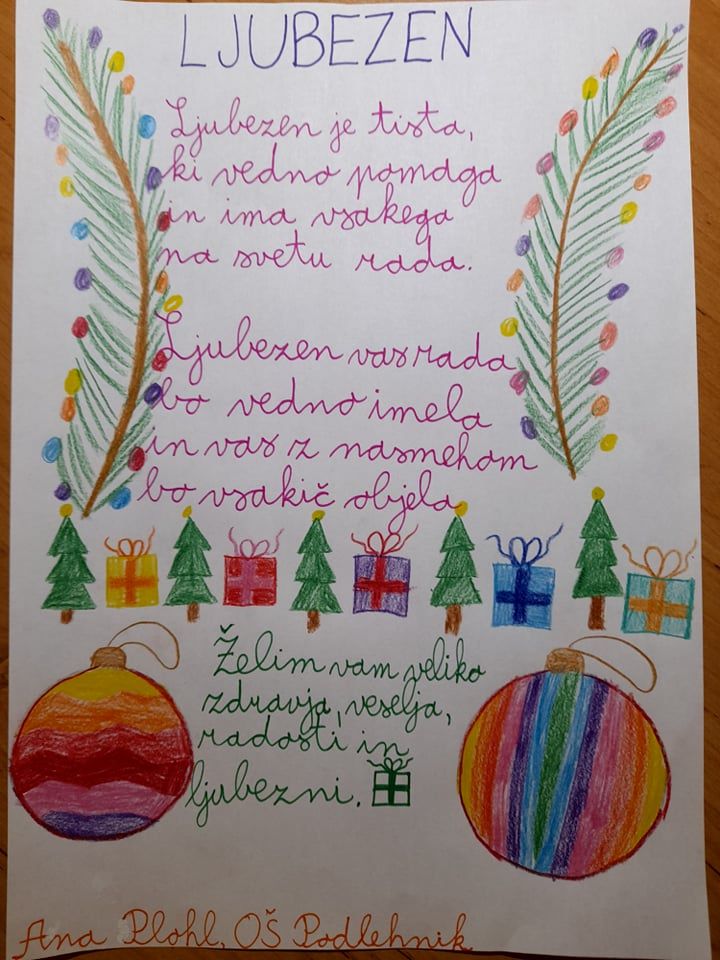 LJUBEZEN
Ljubezen je tista,
ki vedno pomaga
in ima vsakega
na svetu rada.
Ljubezen vas rada
bo vedno imela
in vas z nasmehom
bo vsakič objela
Želim vam veliko
zdravja, veselja,
radosti in
ljubezni.
Ana Plohl, OŠ Podlehnik